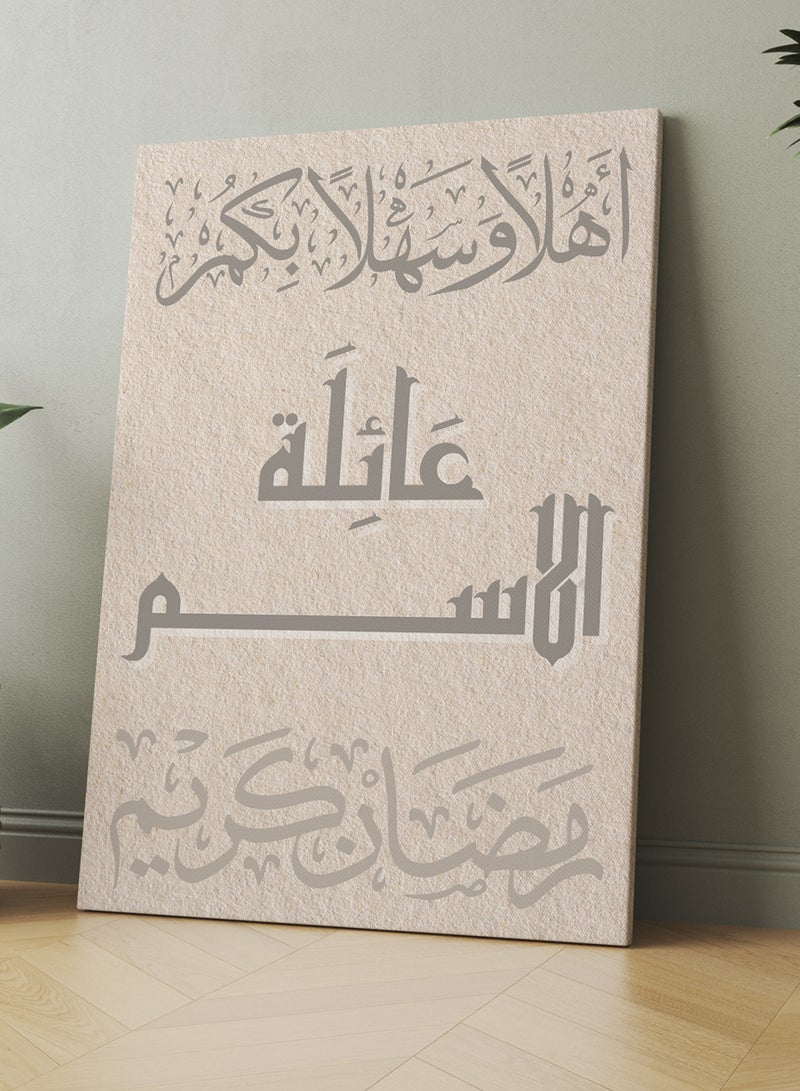 أَهْلاً وَسَهْلاً بِكُمْ
عَائِلَة
الاسم
رَمَضَان كَرِيْم